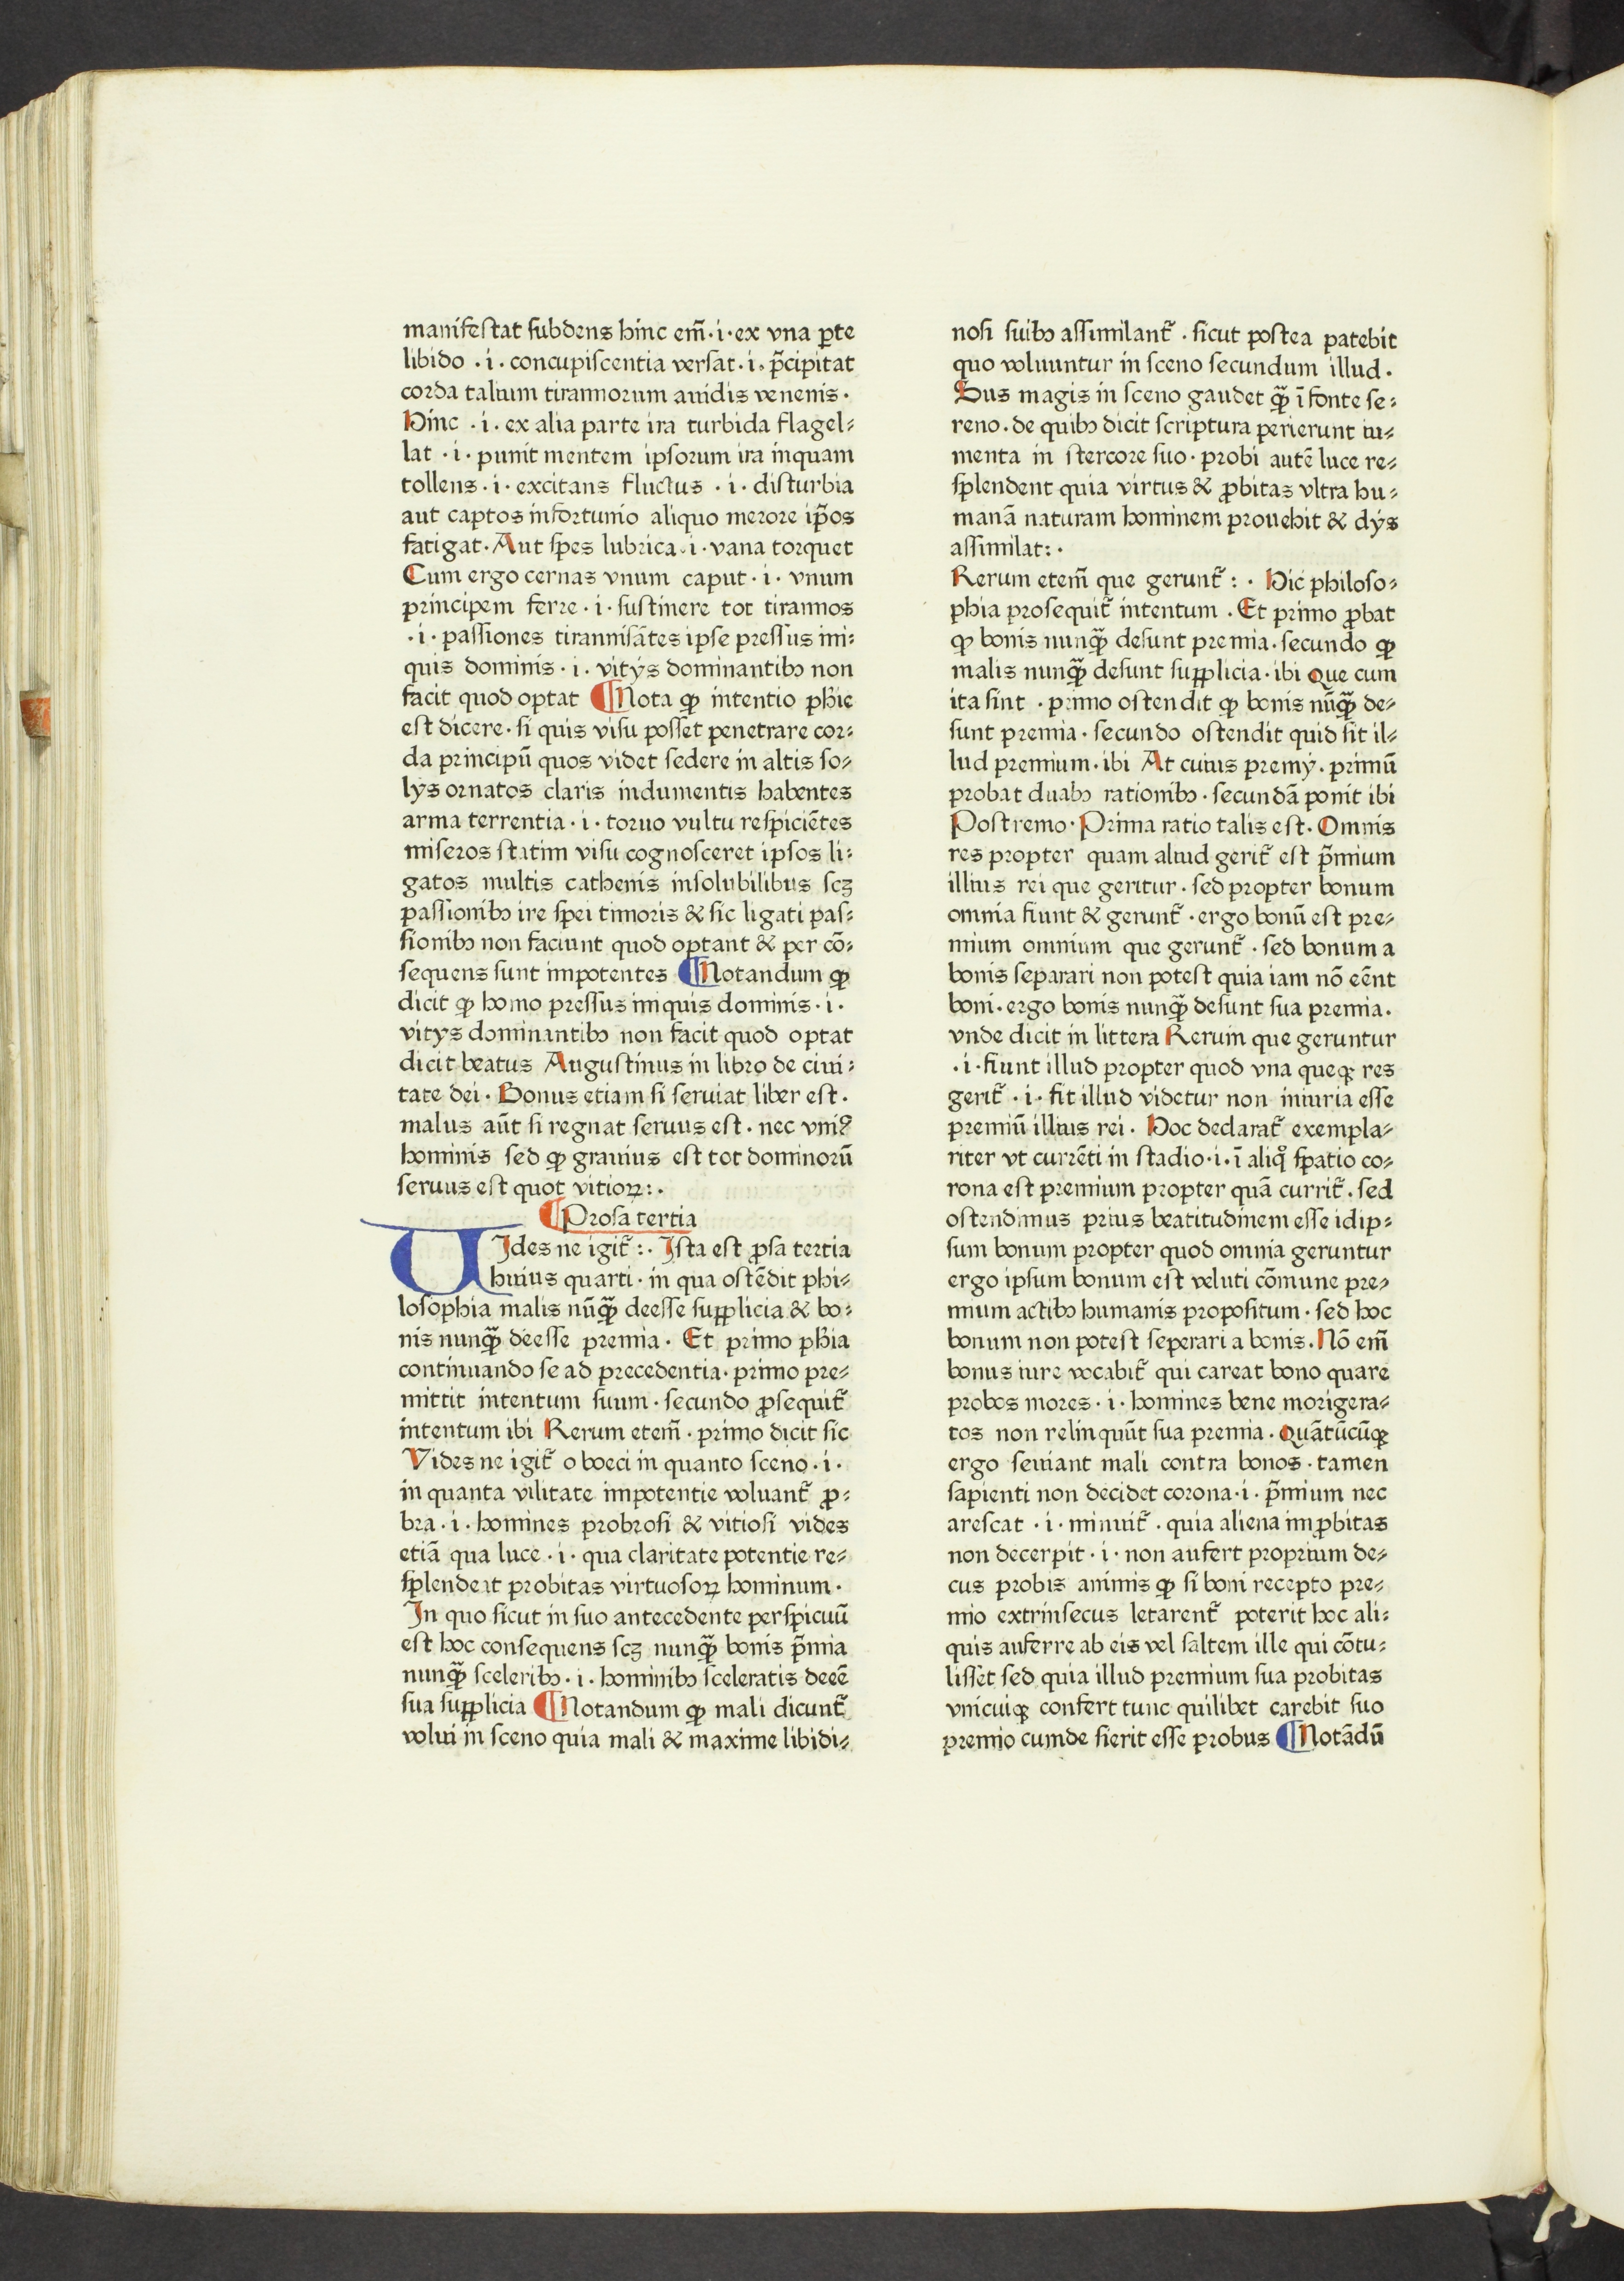 manifestat subdens hinc em̃·i·ex vna ꝑte
libido ·i· concupiscentia versat·i·p̃cipitat
corda talium tirannorum auidis venenis·
Hinc ·i·ex alia parte ira turbida flagel⸗
lat ·i· punit mentem ipsorum ira inquam
tollens·i·excitans fluctus ·i· disturbia
aut captos infortunio aliquo merore ip̃os
fatigat·Aut spes lubrica·i·vana torquet
Cum ergo cernas vnum caput·i·vnum
principem ferre·i·sustinere tot tirannos
·i·passiones tirannisātes ipse pressus ini⸗
quis dominis·i·vitÿs dominantibꝫ non
facit quod optat ¶Nota ꝙ intentio phie
est dicere·si quis visu posset penetrare cor⸗
da principū quos videt sedere in altis so⸗
lÿs ornatos claris indumentis habentes
arma terrentia·i·toruo vultu respiciētes
miseros statim visu cognosceret ipsos li⸗
gatos multis cathenis insolubilibus scꝫ
passionibꝫ ire spei timoris & sic ligati pas⸗
sionibꝫ non faciunt quod optant & per cō⸗
sequens sunt impotentes ¶Notandum ꝙ
dicit ꝙ homo pressus iniquis dominis·i·
vitÿs dominantibꝫ non facit quod optat
dicit beatus Augustinus in libro de ciui⸗
tate dei·Bonus etiam si seruiat liber est·
malus aūt si regnat seruus est·nec vniꝰ
hominis sed ꝙ grauius est tot dominorū
seruus est quot vitioꝝ:·
¶Prosa tertia
VIdes ne igit̃:· Ista est ꝓsa tertia
huius quarti·in qua ostēdit phi⸗
losophia malis nūqꝫ̃ deesse supplicia & bo⸗
nis nunqꝫ̃ deesse premia· Et primo phia
continuando se ad precedentia·primo pre⸗
mittit intentum suum·secundo ꝓsequit̃
intentum ibi Rerum etem̃·primo dicit sic
Vides ne igit̃ o boeci in quanto sceno·i·
in quanta vilitate impotentie voluant̃ ꝓ⸗
bra·i·homines probrosi & vitiosi vides
etiā qua luce·i·qua claritate potentie re⸗
splendeat probitas virtuosoꝝ hominum·
In quo sicut in suo antecedente perspicuū
est hoc consequens scꝫ nunqꝫ̃ bonis p̃mia
nunqꝫ̃ sceleribꝫ·i·hominibꝫ sceleratis deeē
sua supplicia ¶Notandum ꝙ mali dicunt̃
volui in sceno quia mali & maxime libidi⸗
nosi suibꝫ assimilant̃ ·sicut postea patebit
quo voluuntur in sceno secundum illud·
Sus magis in sceno gaudet qꝫ̃ ī fonte se⸗
reno·de quibꝫ dicit scriptura perierunt iu⸗
menta in stercore suo·probi autē luce re⸗
splendent quia virtus & ꝓbitas vltra hu⸗
manā naturam hominem prouehit & dÿs
assimilat:·
Rerum etem̃ que gerunt̃:· Hic philoso⸗
phia prosequit̃ intentum ·Et primo ꝓbat
ꝙ bonis nunqꝫ̃ desunt premia·secundo ꝙ
malis nunqꝫ̃ desunt supplicia·ibi Que cum
ita sint ·primo ostendit ꝙ bonis nūqꝫ̃ de⸗
sunt premia·secundo ostendit quid sit il⸗
lud premium·ibi At cuius premÿ·primū
probat duabꝫ rationibꝫ·secundā ponit ibi
Postremo·Prima ratio talis est·Omnis
res propter quam aliud gerit̃ est p̃mium
illius rei que geritur·sed propter bonum
omnia fiunt & gerunt̃·ergo bonū est pre⸗
mium omnium que gerunt̃ ·sed bonum a
bonis separari non potest quia iam nō eēnt
boni·ergo bonis nunqꝫ̃ desunt sua premia.
vnde dicit in littera Rerum que geruntur
·i·fiunt illud propter quod vna queqꝫ res
gerit̃ ·i·fit illud videtur non iniuria esse
premiū illius rei· Hoc declarat̃ exempla⸗
riter vt currēti in stadio·i·ī aliqͦ spatio co⸗
rona est premium propter quā currit̃·sed
ostendimus prius beatitudinem esse idip⸗
sum bonum propter quod omnia geruntur
ergo ipsum bonum est veluti cōmune pre⸗
mium actibꝫ humanis propositum·sed hoc
bonum non potest seperari a bonis·Nō em̃
bonus iure vocabit̃ qui careat bono quare
probos mores·i·homines bene morigera⸗
tos non relinquūt sua premia·Quātūcūqꝫ
ergo seuiant mali contra bonos·tamen
sapienti non decidet corona·i·p̃mium nec
arescat ·i·minuit̃ ·quia aliena imꝓbitas
non decerpit·i·non aufert proprium de⸗
cus probis animis ꝙ si boni recepto pre⸗
mio extrinsecus letarent̃ poterit hoc ali⸗
quis auferre ab eis vel saltem ille qui cōtu⸗
lisset sed quia illud premium sua probitas
vnicuiqꝫ confert tunc quilibet carebit suo
premio cumde sierit esse probus ¶Notādū